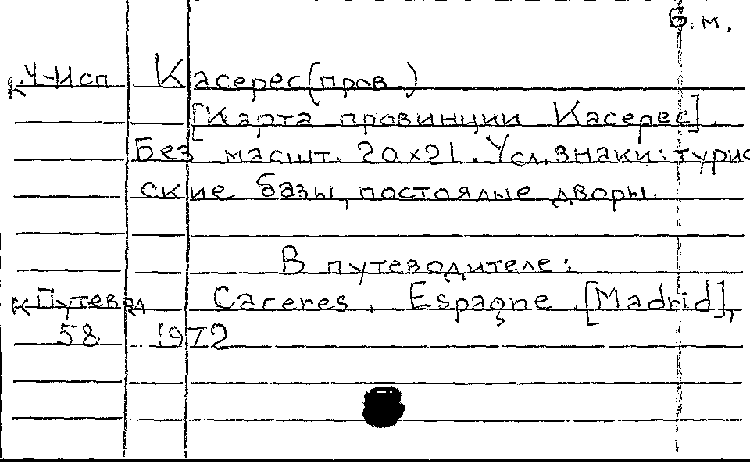 Б.м.
К У-Исп Касерес (пров.)
[Карта провинции Касерес].
Без масшт. 20х21. Усл. знаки: турис
ские базы, постоялые дворы.
В путеводителе:
К Путевод Caceres. Espagne. [Madrid],
58 1972